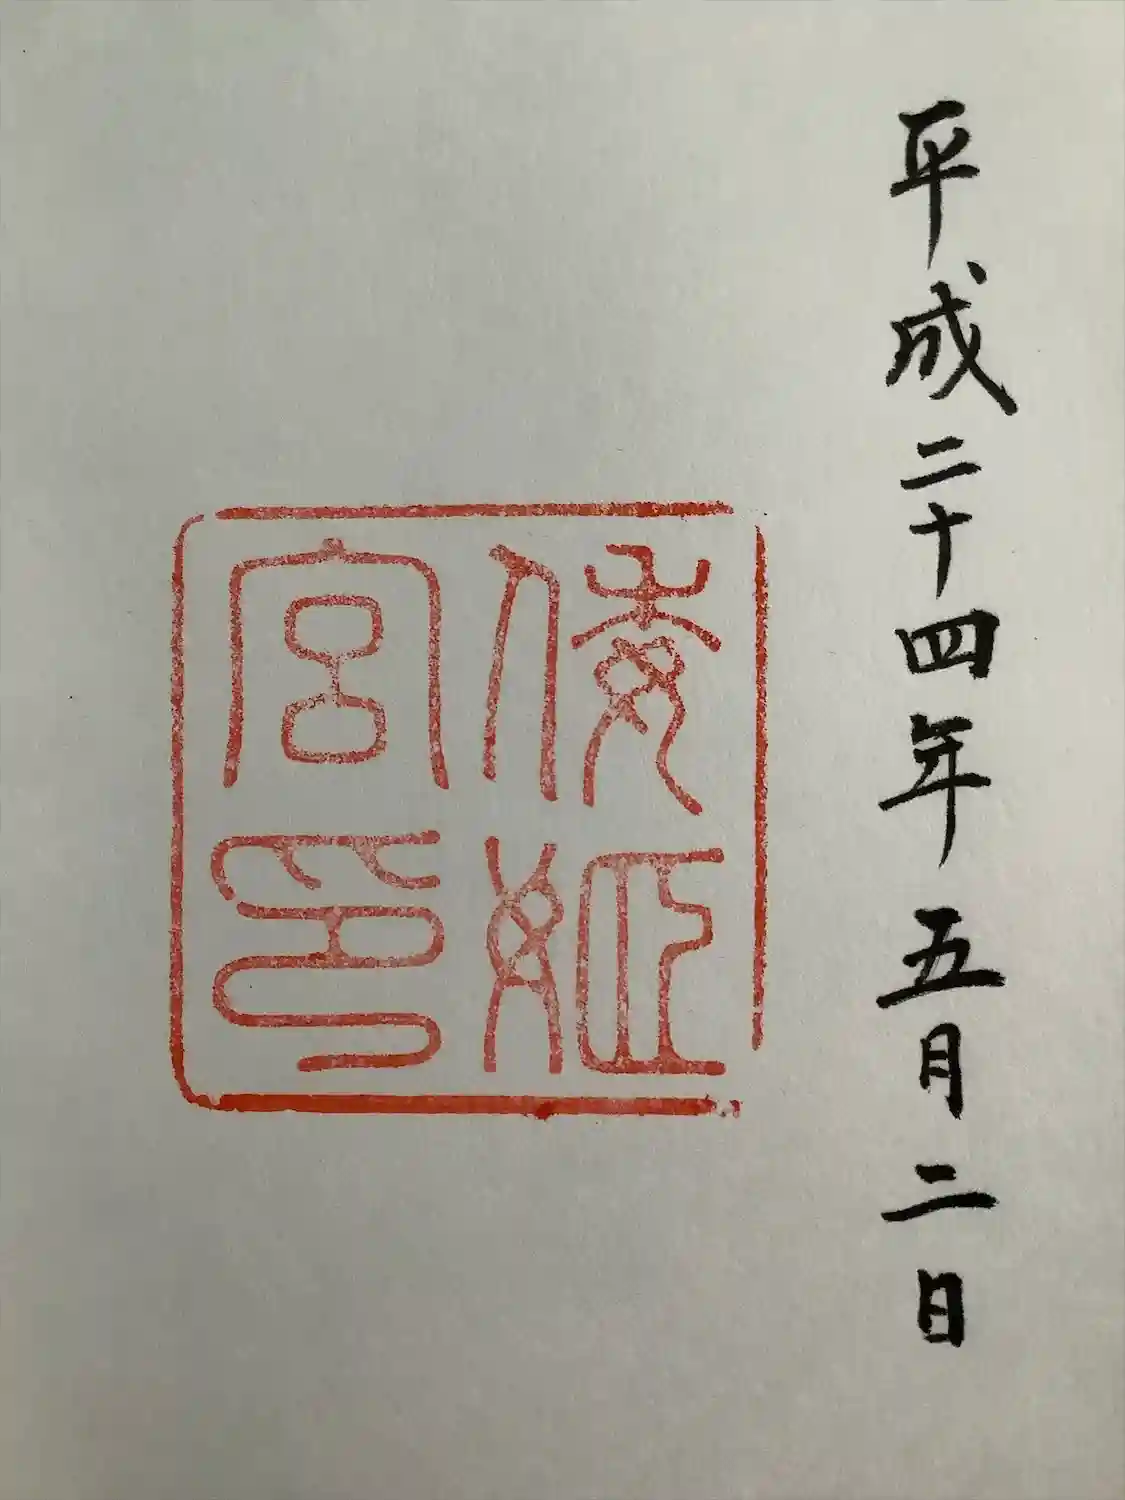 平成二十四年五月二日
倭姫
宮印